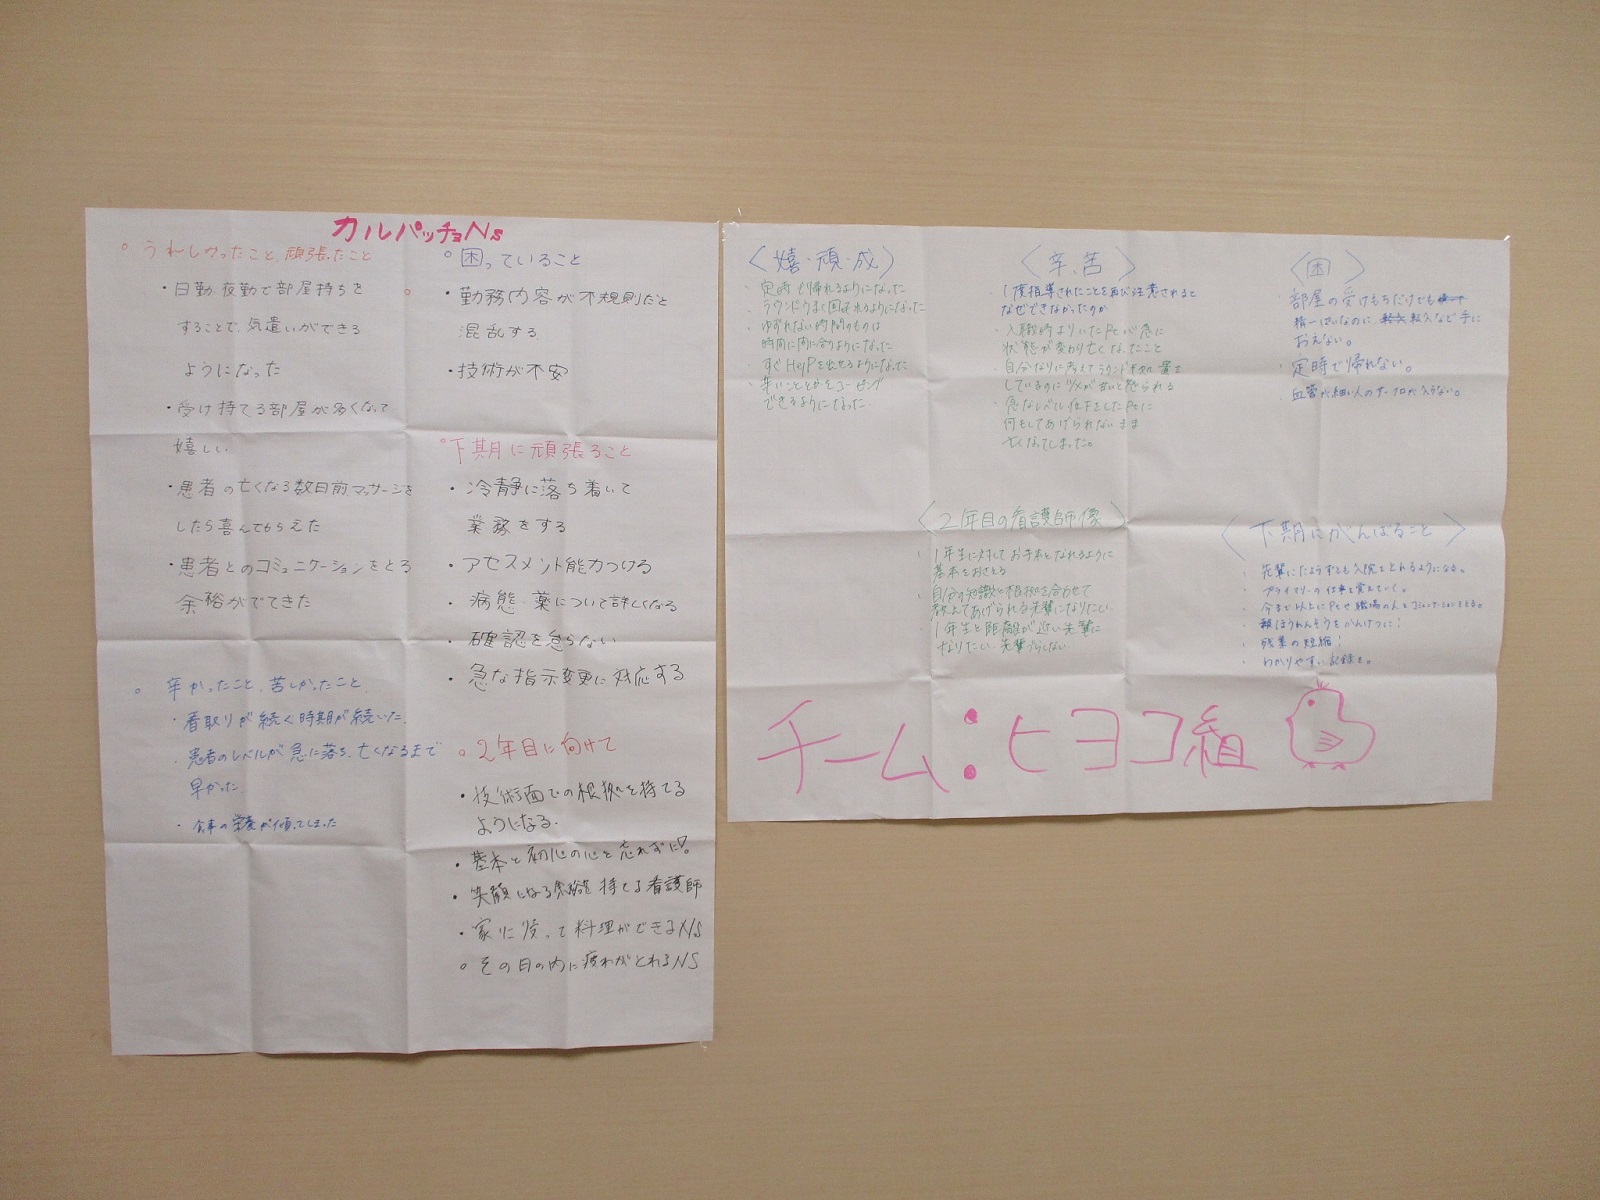 カルパッチョNs
○ うれしかったこと、頑張ったこと
・日勤・夜勤で部屋持ちを
することで、気遣いができる
ようになった
・受け持てる部屋が多くなって
嬉しい
・患者の亡くなる数日前、マッサージを
したら喜んでもらえた
・患者とのコミュニケーションをとる
余裕がでてきた
○ 辛かったこと、苦しかったこと
・看取りが続く時期が続いた。
・患者のレベルが急に落ち、亡くなるまで
早かった
・食事の栄養が偏ってしまった
○困っていること
・勤務内容が不規則だと
混乱する
・技術が不安
○下期に頑張ること
・冷静に落ち着いて
業務をする
・アセスメント能力つける
・病態・薬について詳しくなる
・確認を怠らない
・急な指示変更に対応する
○ 2年目に向けて
・技術面での根拠を持てる
ようになる.
・基本と初心の心を忘れずに!
・笑顔になる余裕を持てる看護師
・家に帰って料理ができるNs
○ その日の内に疲れがとれるNS
〈嬉・頑・成〉
・定時で帰れるようになった
・ラウンドうまく回れるようになった
・ゆずれない時間のものは
時間に間に合うようになった
・すぐHelpを出せるようになった
できるようになった.
〈辛、苦〉
・1度指導されたことを再び注意されると
なぜできなかったのか
・入職時よりいたPtが急に
状態が変わり亡くなったこと
・急なレベル低下をしたPtに
何もしてあげられないまま
亡くなってしまった。
〈困〉
・部屋の受けもちだけでも
精一ぱいなのに、など手に
おえない。
・定時で帰れない。
・血管が細い人のサーフロが入らない。
〈2年目の看護師像〉
・1年生に対してお手本となれるように
基本をおさえる
・自分の知識と根拠を合わせて
教えてあげられる先輩になりたい.
・1年生と距離が近い先輩に
なりたい. 先輩ブらない
〈下期にがんばること〉
・先輩にたよらずとも入院をとれるようになる。
・プライマリーの仕事を覚えていく。
・今まで以上にPtや職場の人とコミュニケーションをとる。
・報ほうれんそうをかんけつに!
・残業の短縮!
・わかりやすい記録を。
チーム:ヒヨコ組